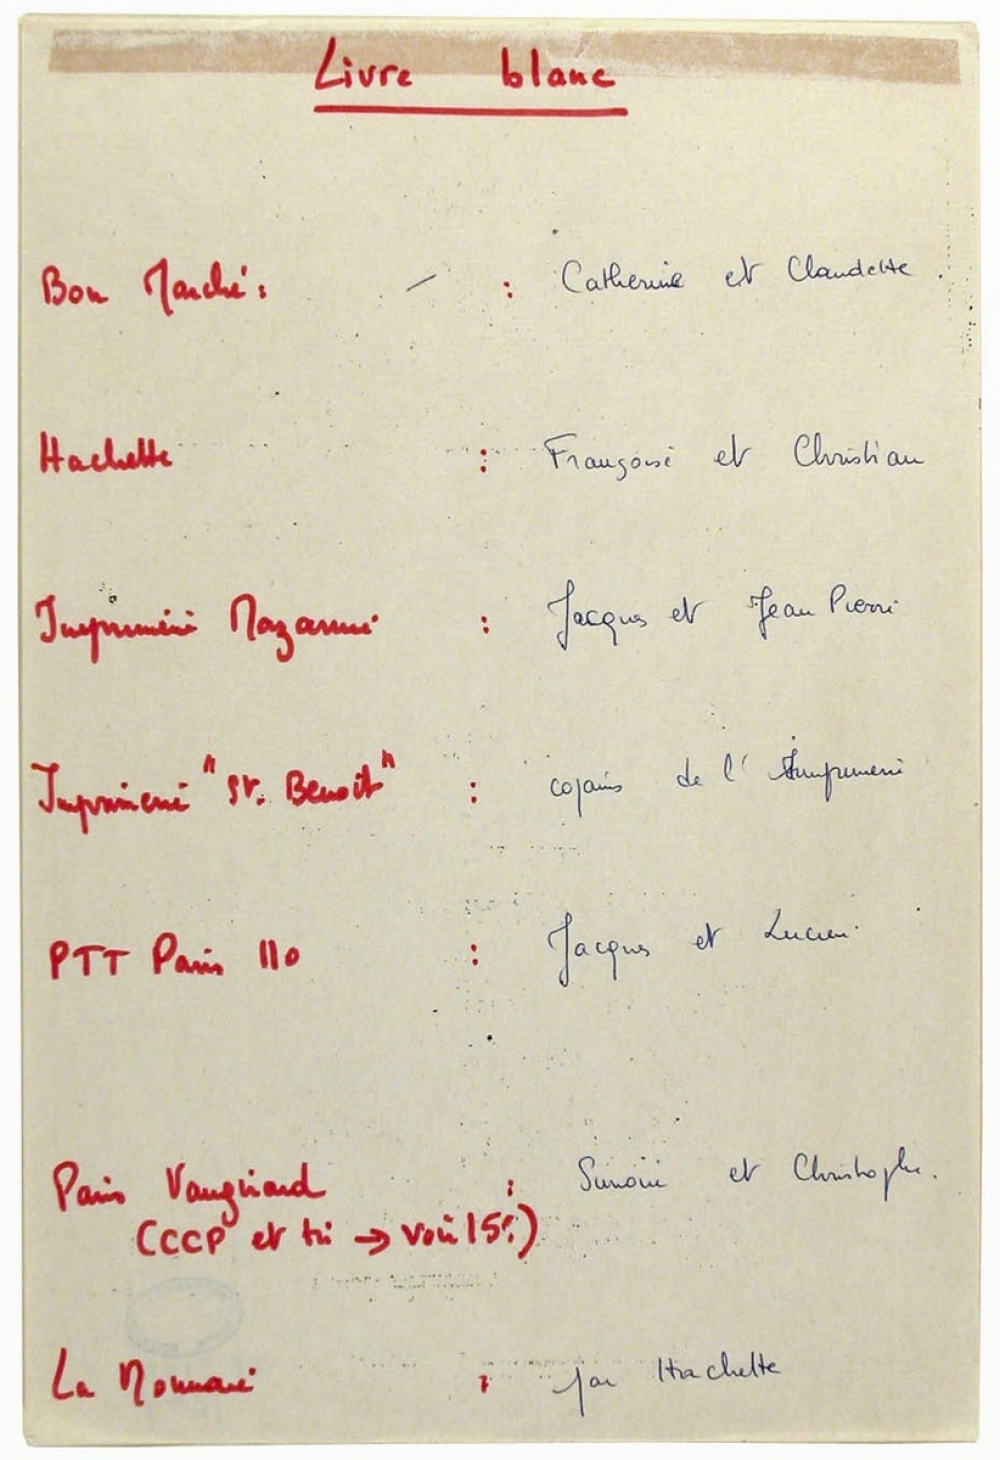 Livre blanc
Bon Marché : : Catherine et Claudette.
Hachette : Françoise et Christian
Imprimerie Mazarine : Jacques et Jean Pierre
Imprimerie "St. Benoît" : copains de l'Imprimerie
PTT Paris 110 : Jacques et Lucien.
Paris Vaugirard : Simone et Christophe.
(CCP et tri → voir 15e)
La Monnaie : par Hachette